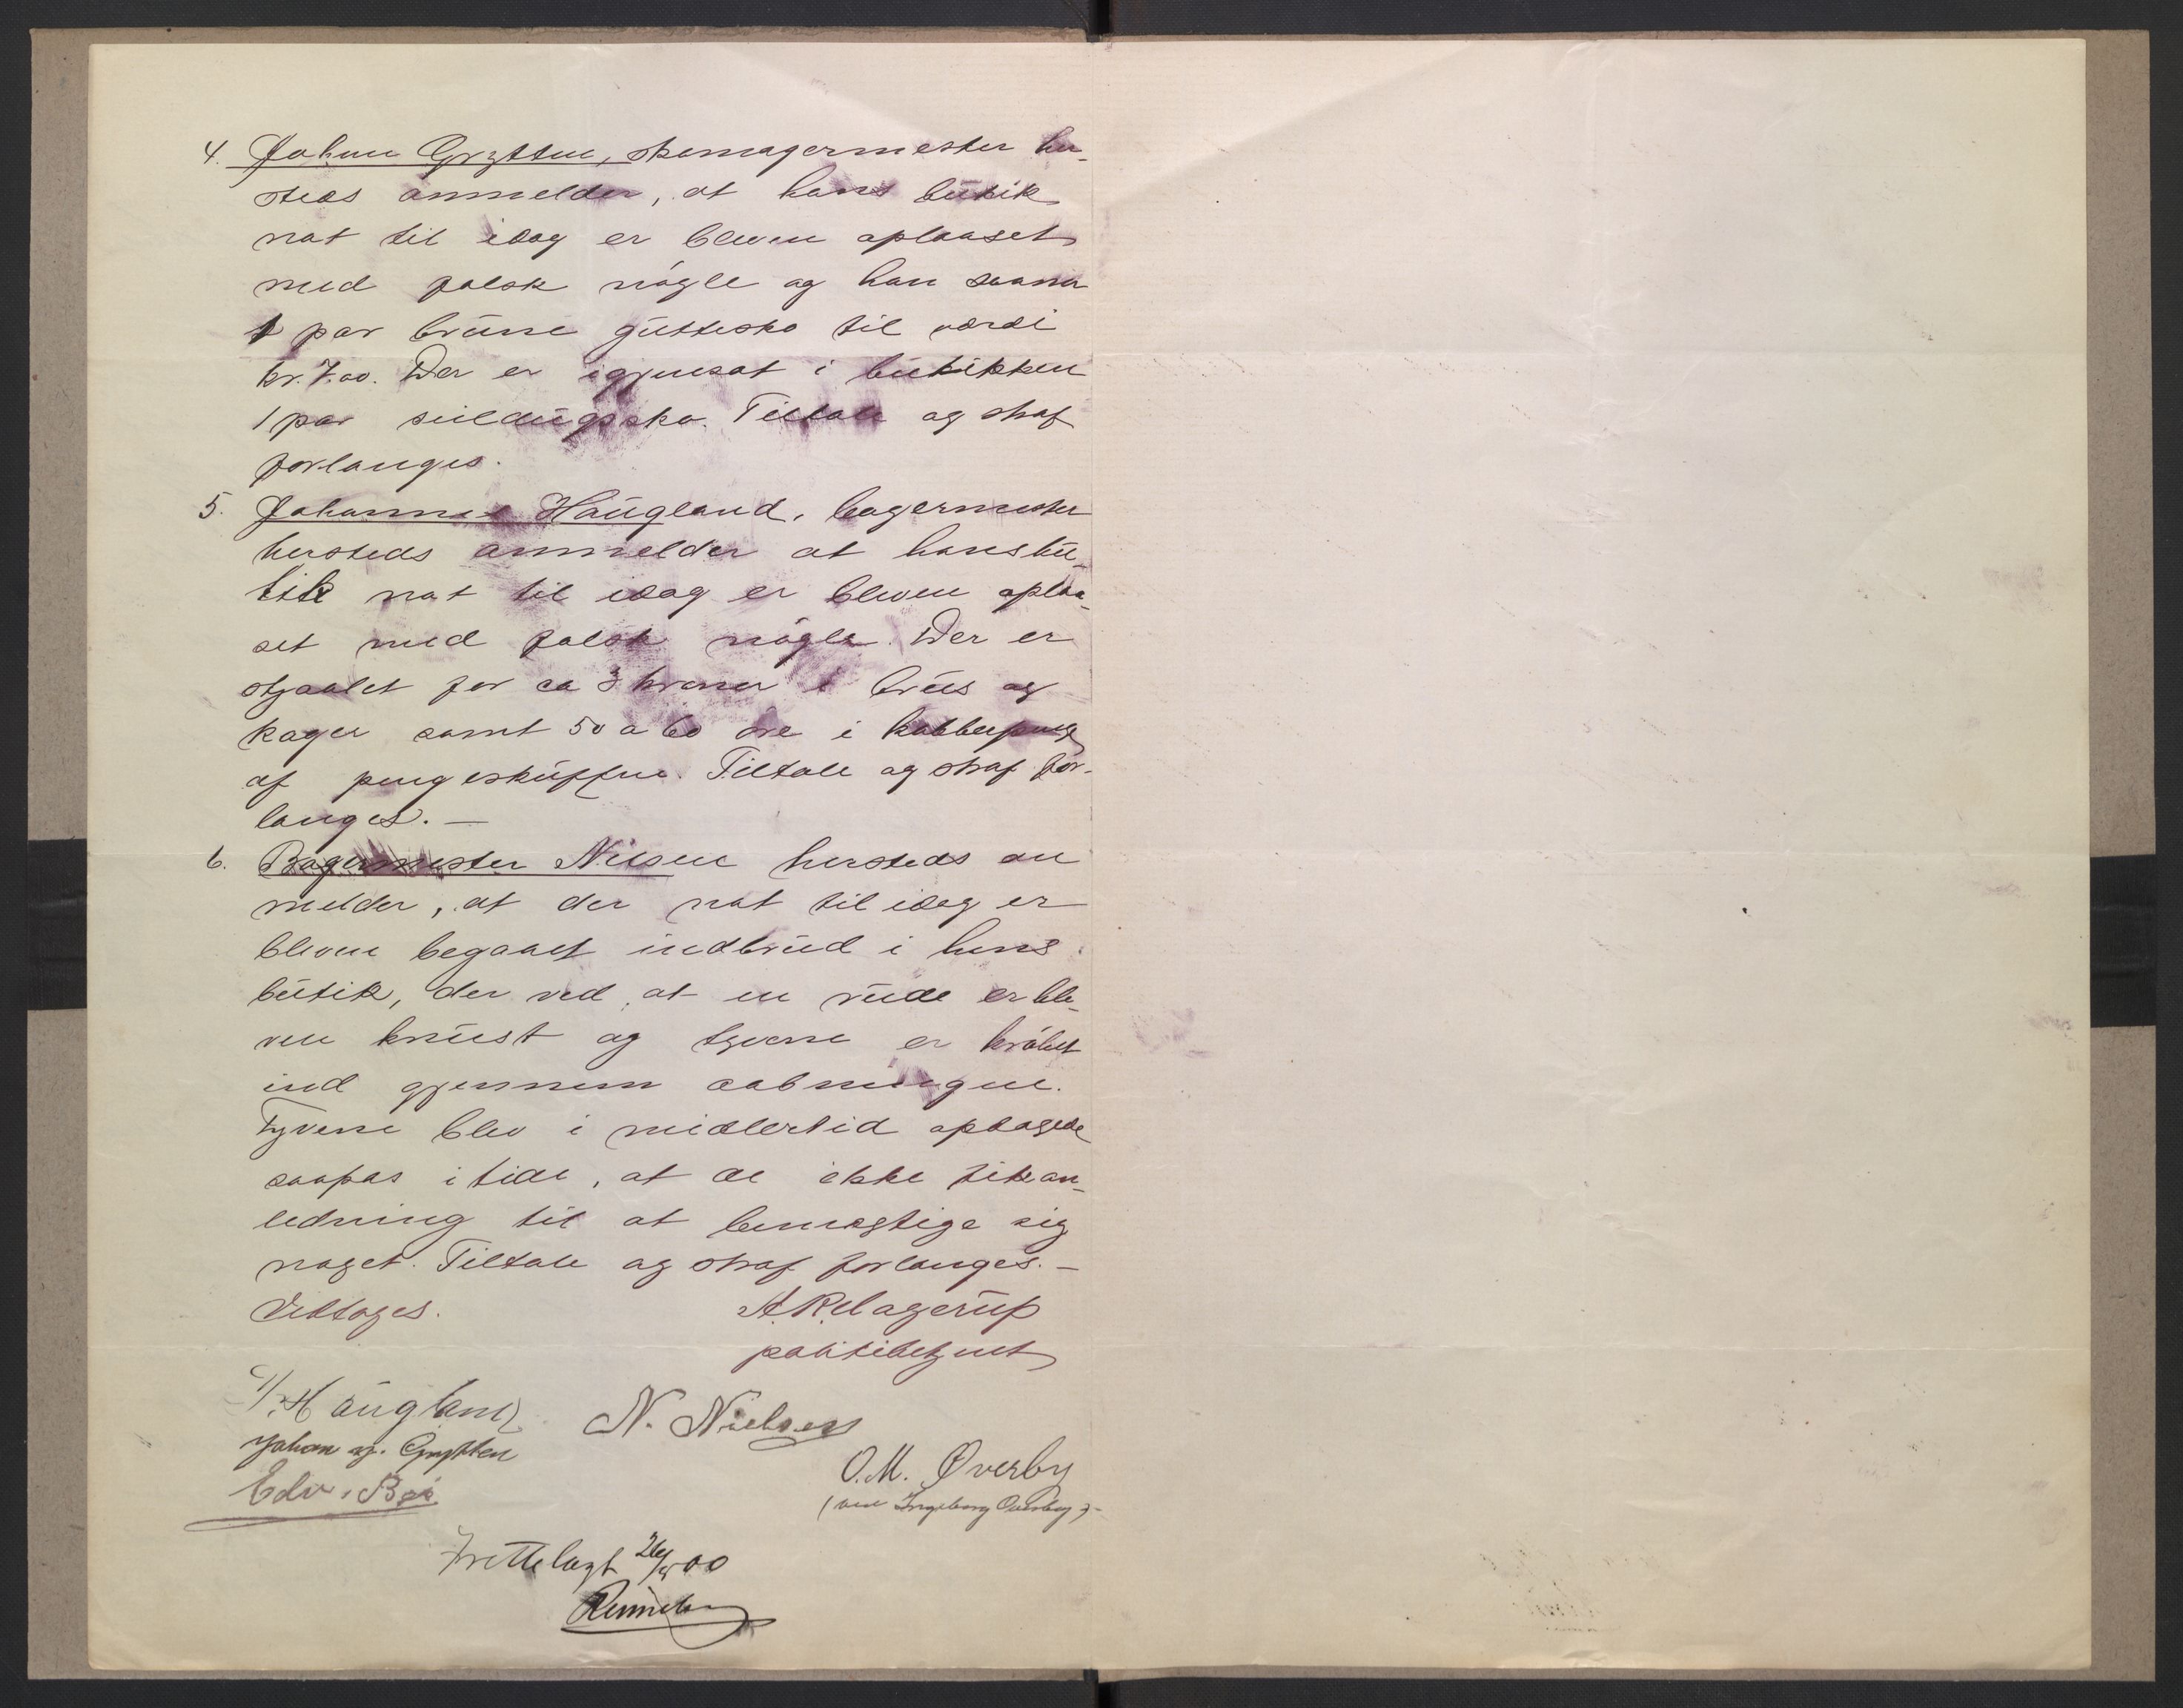 4. Johan Grytten, skomagermester her-
steds anmelder, at hans butik
nat til idag er bleven oplaaset
med falsk nøgle og han savner
1 par brune guttesko til værdi
kr. 7.00. Der er igjensat i butikken
1 par seildugssko. Tiltale og straf
forlanges.
5. Johannes Haugland, bagermester
hersteds anmelder at hans bu-
tik nat til idag er bleven oplaa-
set med falsk nøgle. Der er
stjaalet for ca 3 kroner i brus og
kager samt 50 a 60 øre i kobberpenge
af pengeskuffen. Tiltale og straf for-
langes. —
6. Bagermester Nilsen hersteds an
melder, at der nat til idag er
bleven begaaet indbrud i hans
butik, der ved, at en rude er ble-
ven knust og tyvene er krøbet
ind gjennem aabningen.
Tyvene blev i midlertid opdagede
saapas i tide, at de ikke fik an-
ledning til at bemægtige sig
noget. Tiltale og straf forlanges. —
Vedtages.
A. R. Lagerup
politibetjent
J. Haugland
N. Nielsen
Johan Grytten
O. M. Øverby
Edv. Bøe
(ved Ingeborg Øverby)
Fremlagt 26/5 00